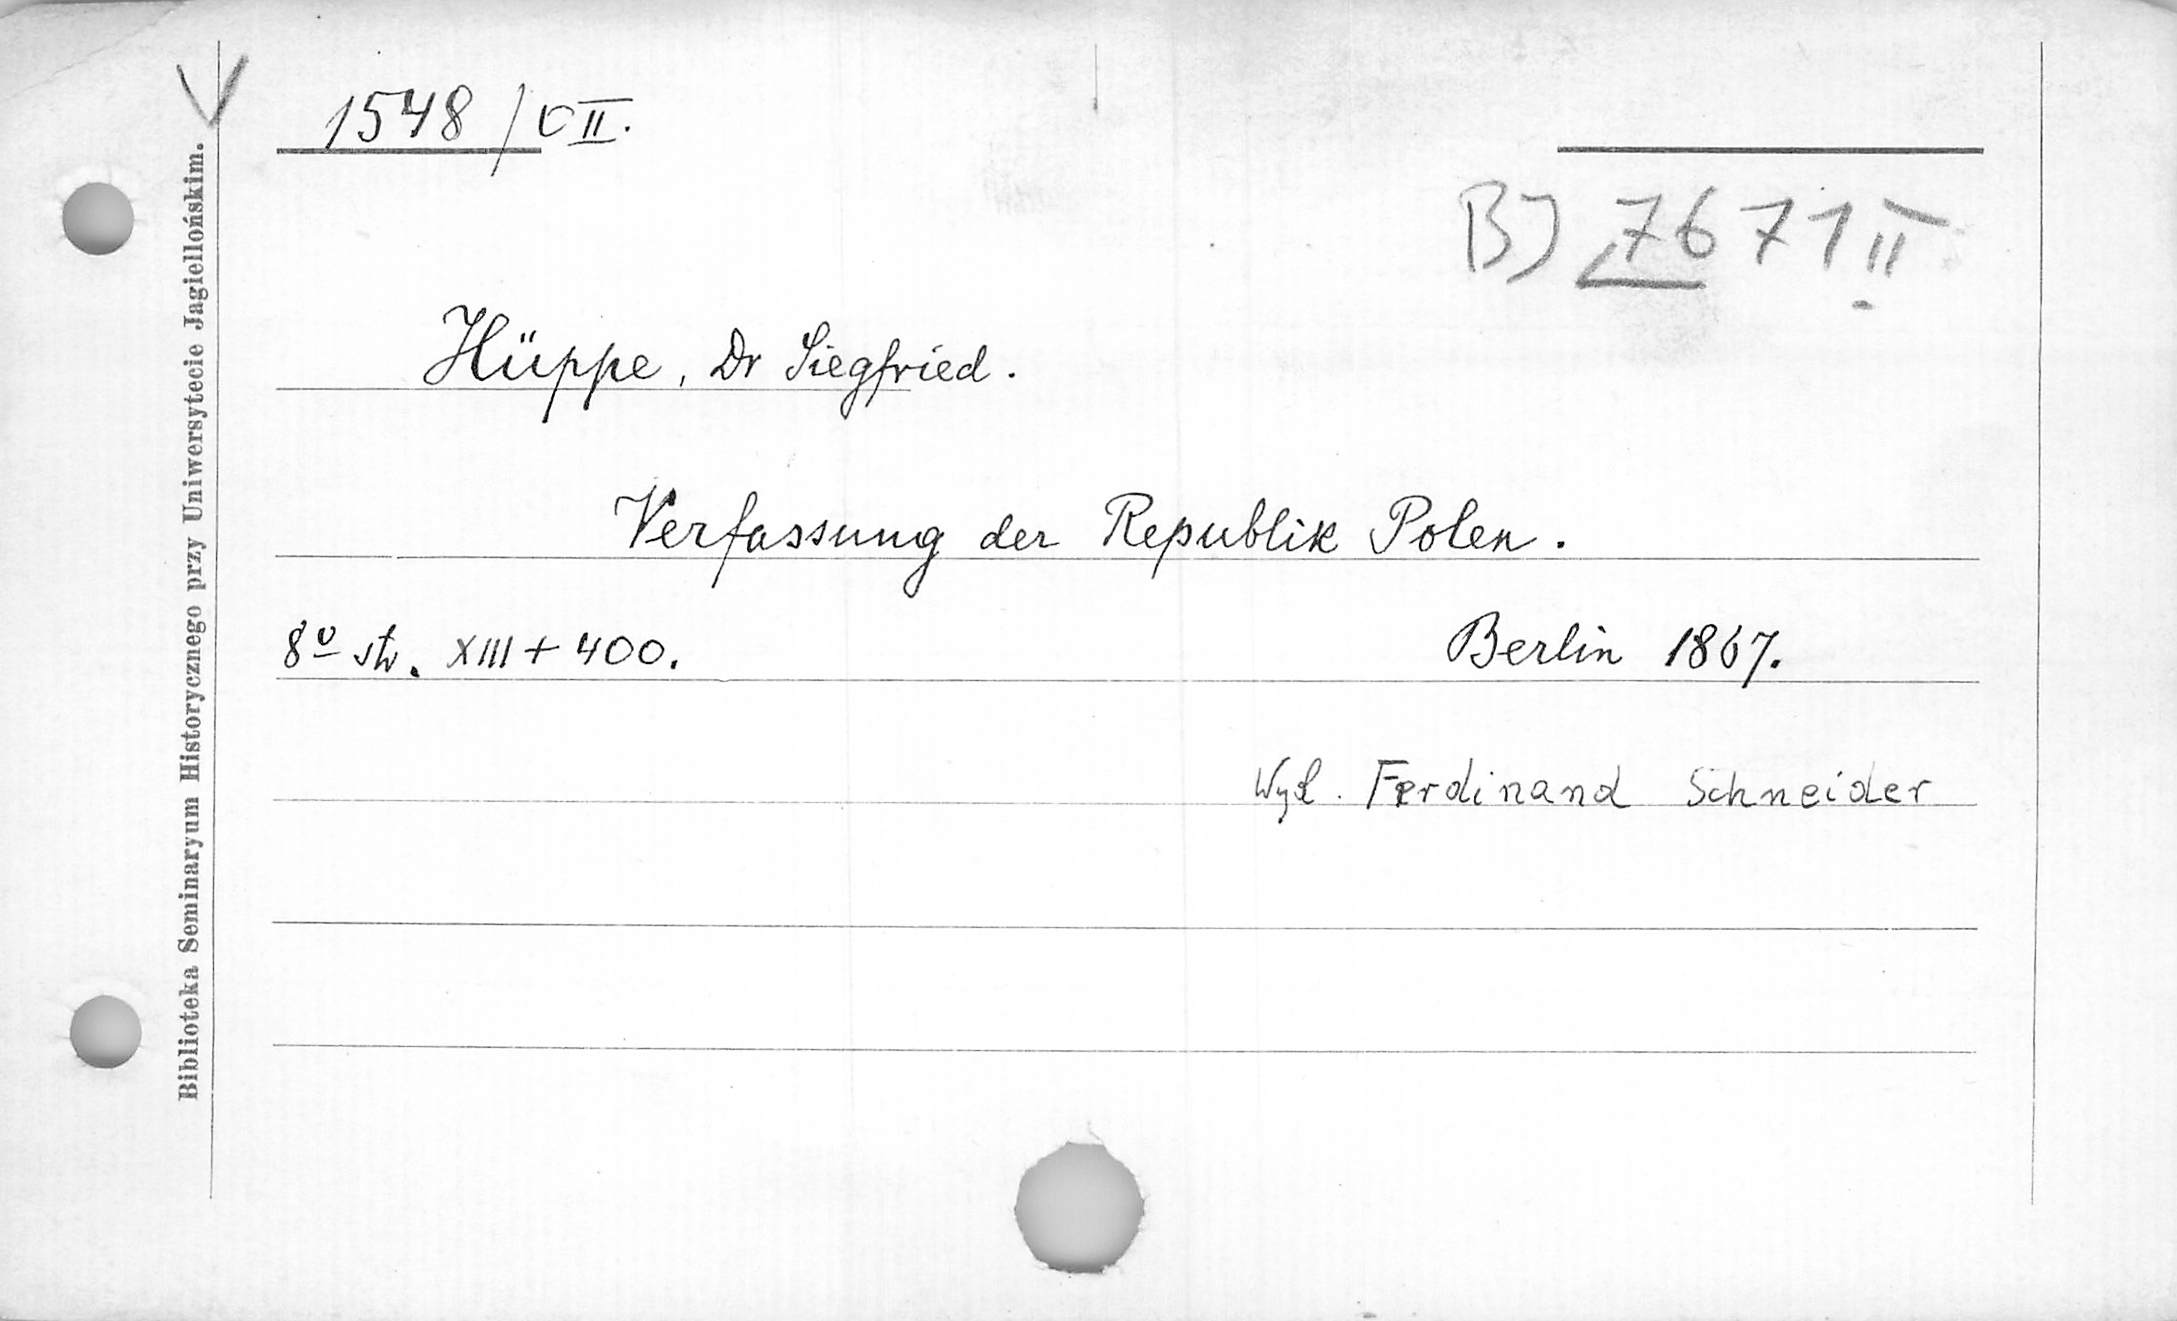 1548/C II.
BJ 7671 II
Hüppe, Dr Siegfried.
Verfassung der Republik Polen.
8º str. XIII + 400.
Berlin 1867.
Wyd. Ferdinand Schneider
Biblioteka Seminaryum Historycznego przy Uniwersytecie Jagiellońskim.